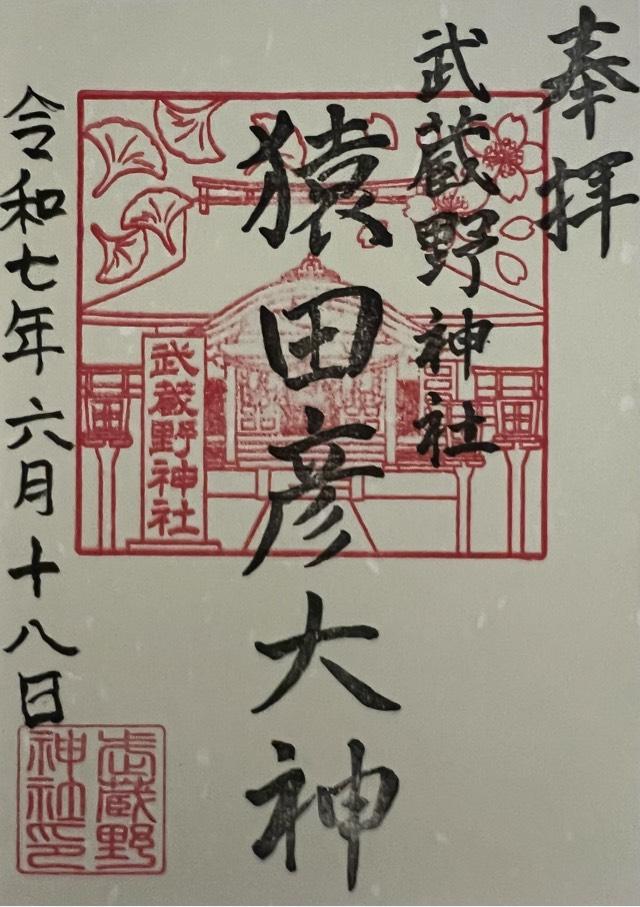 奉拝
武蔵野神社
猿田彦大神
武蔵野神社
令和七年六月十八日
武蔵野
神社印